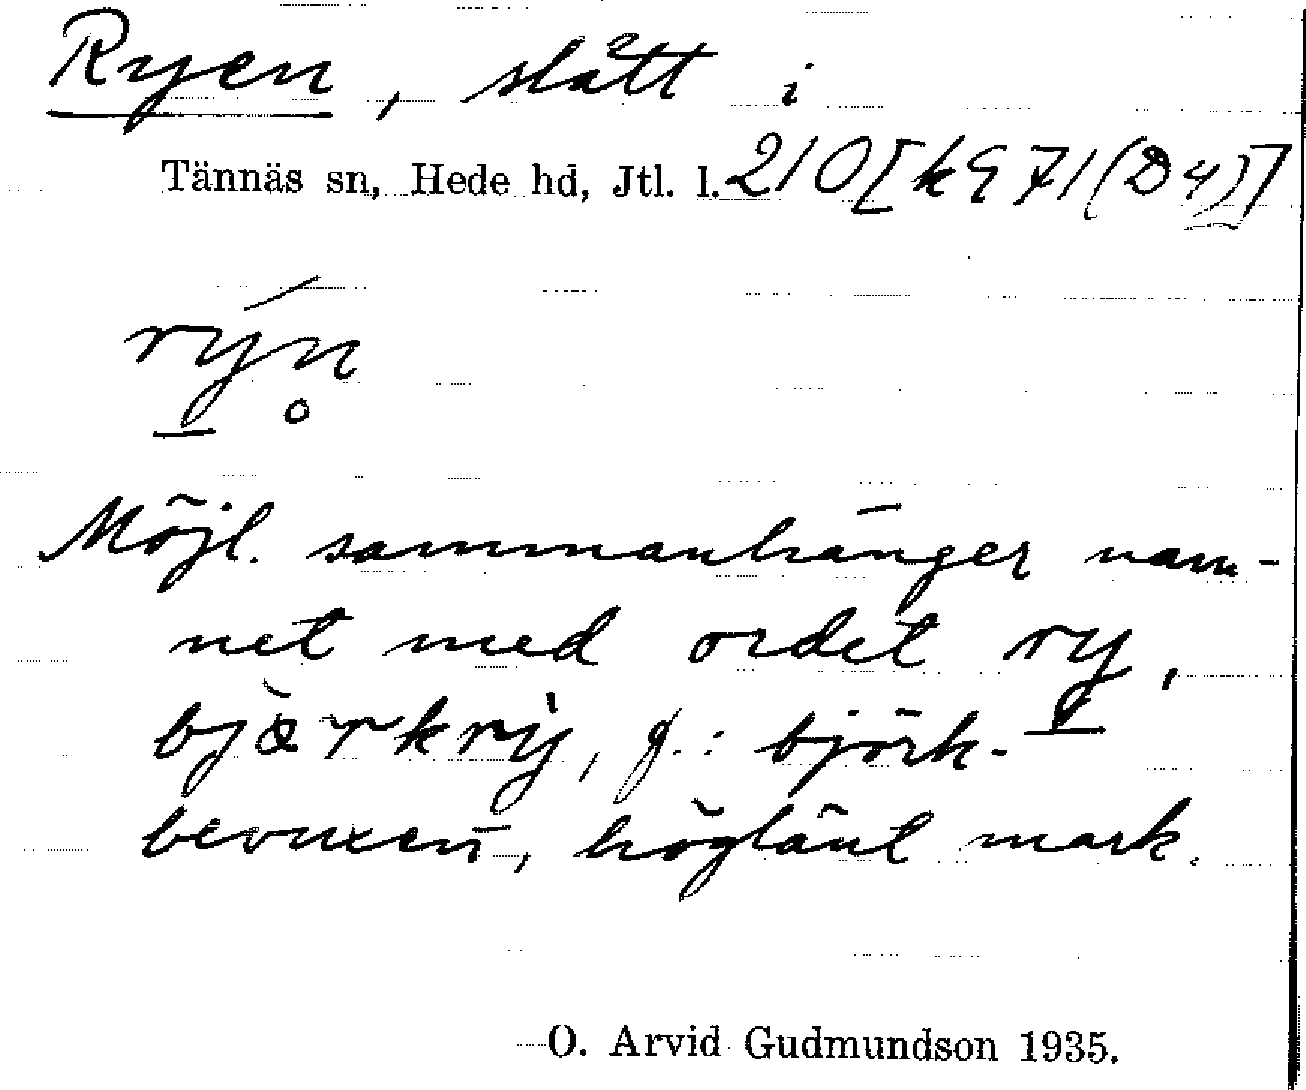 Ryen, slått i
Tännäs sn, Hede hd, Jtl. l. 210[k971(D4)]
rýn̥
Möjl. sammanhänger nam-
net med ordet ry,
bjärkrỳ, f.: björk-
bevuxen, höglänt mark.
O. Arvid Gudmundson 1935.